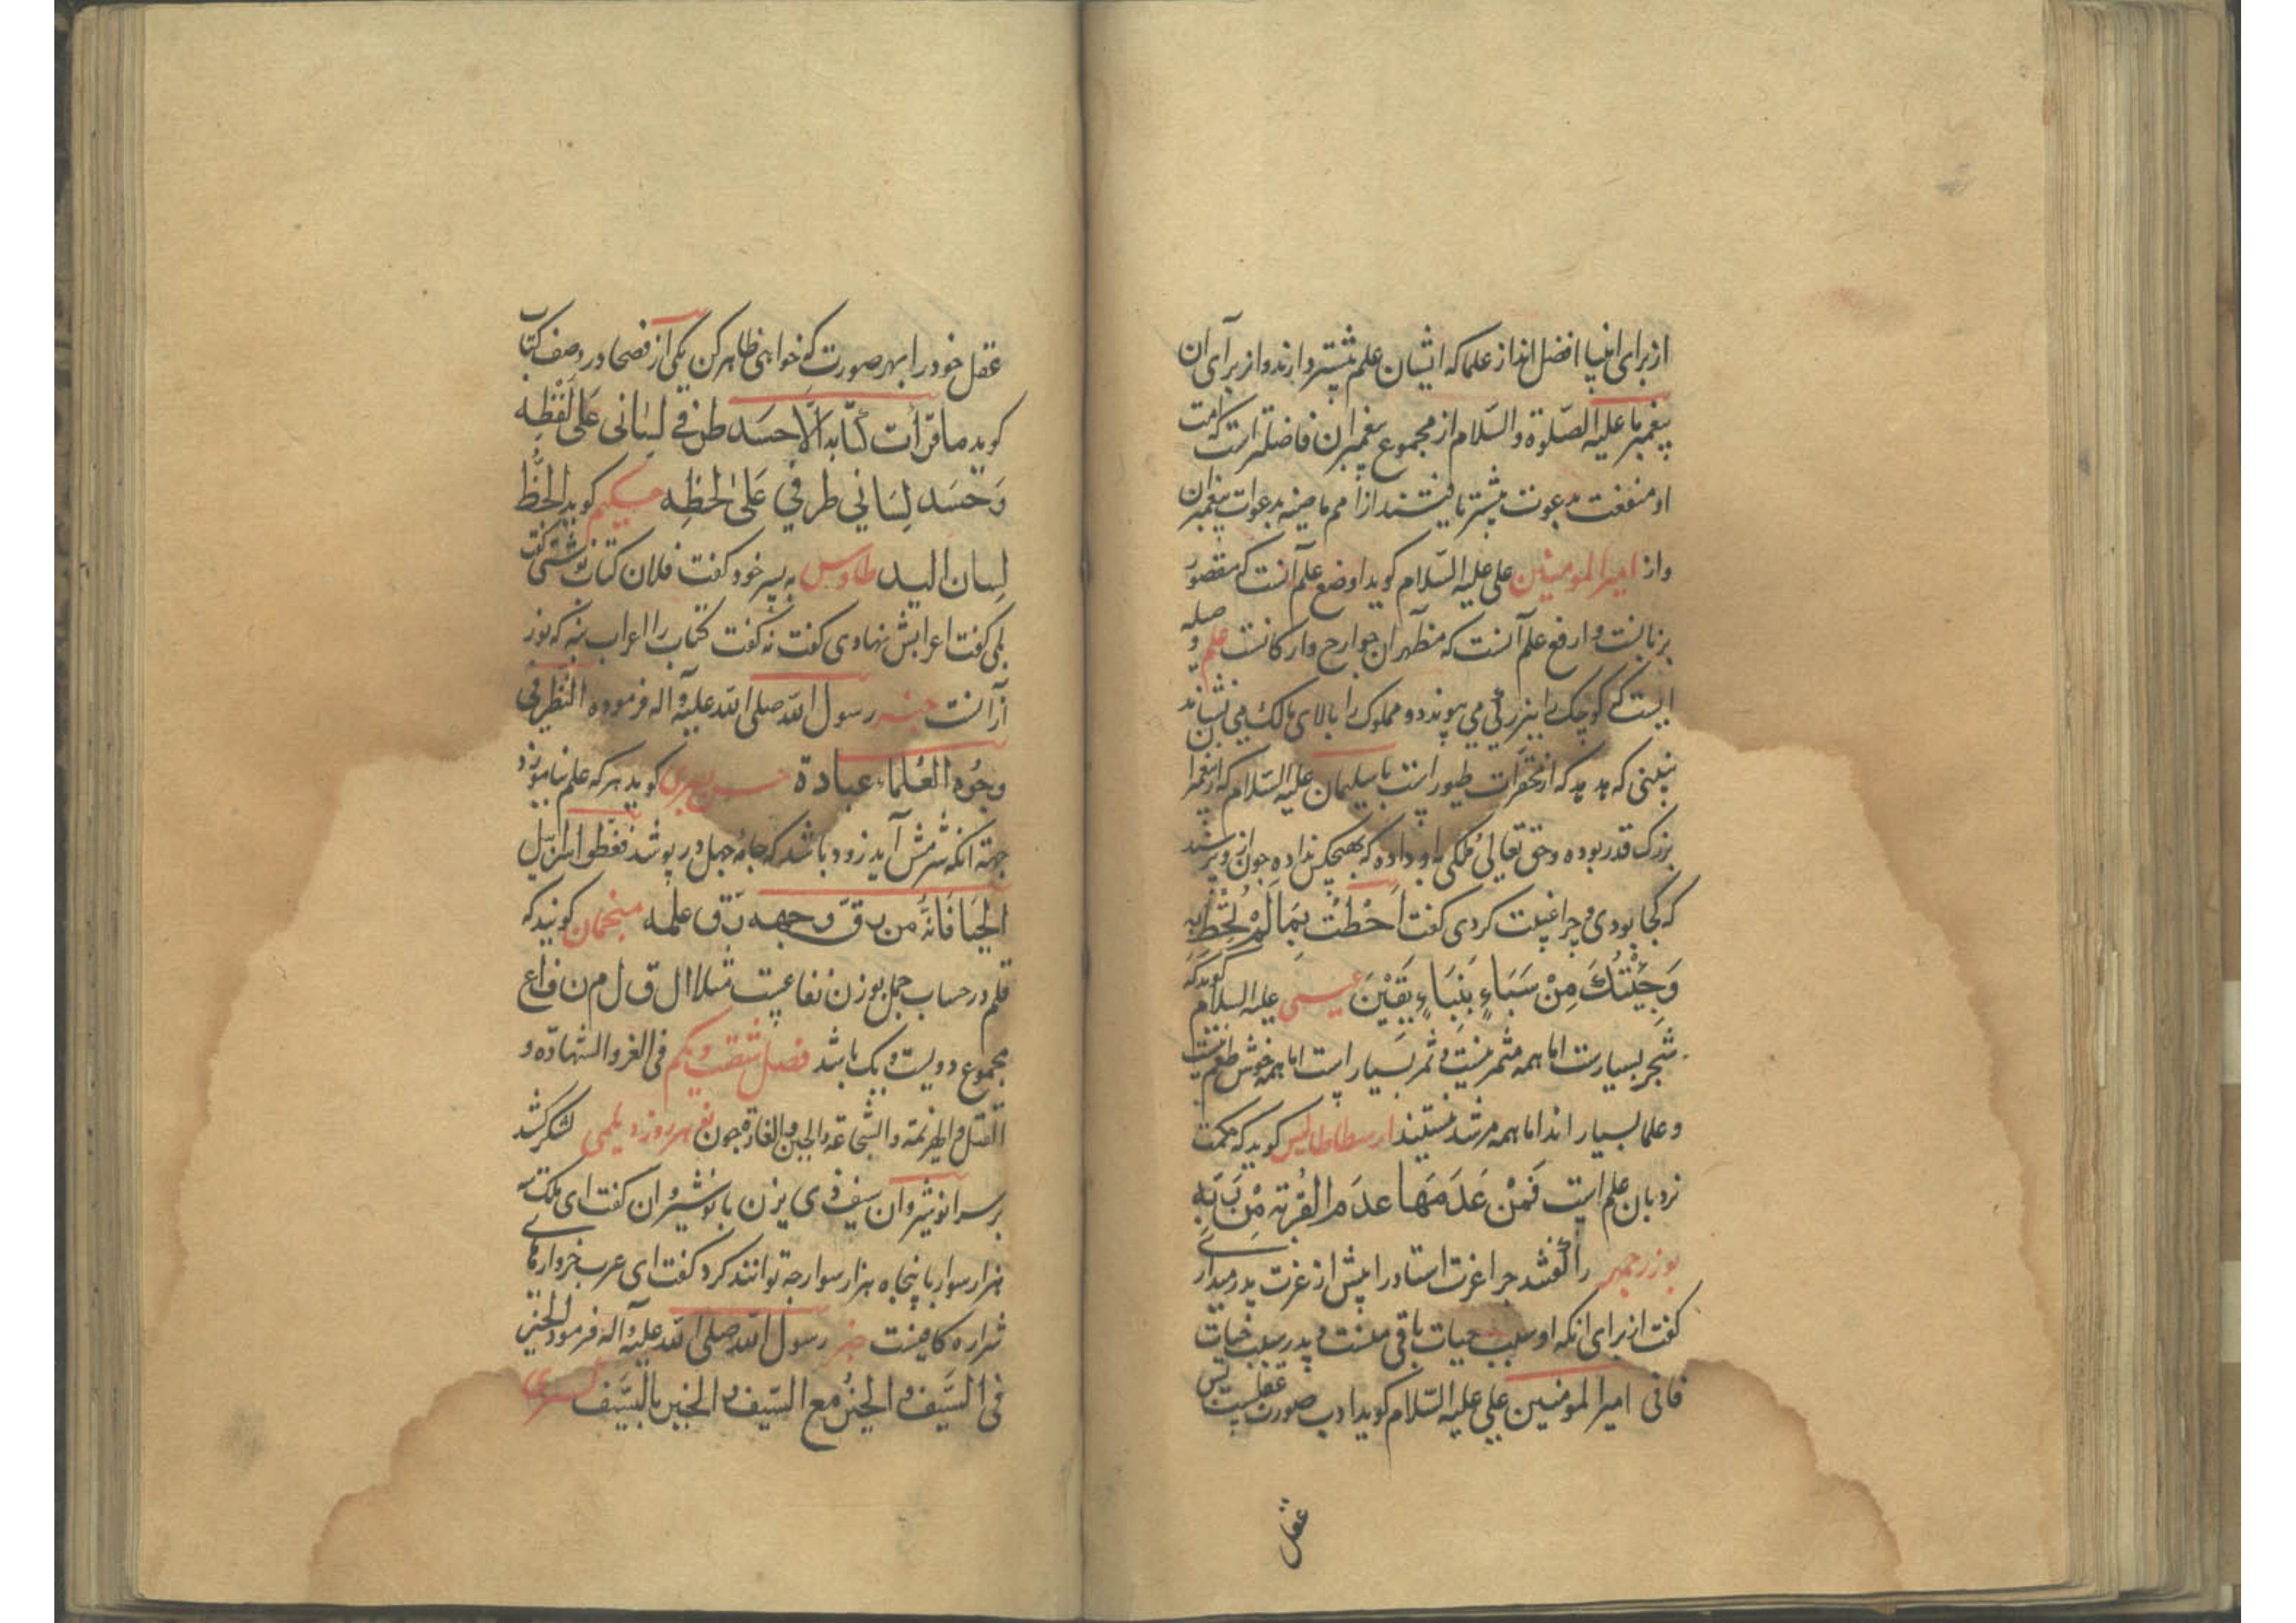 از برای انبیا افضل اند از علما که ایشان علم بیشتر دارند و از برای آن
پیغمبر ما علیه الصّلوة والسّلام از مجموع پیغمبران فاضلتر است که امت
او منفعت بدعوت بیشتر یافتند از امم ماضیه بدعوات پیغمبران
و از امیر المومنین علی علیه السّلام کوید اوضع علم آنست که مقصور
بزبانست و ارفع علم آنست که مظهر آن جوارح و ارکانست علم و صیله
ایست که کوچک را ببزرکی می پیوندد و مملوک را بالای مالک می نشاند
نبینی که هدهد که از محقرات طیور است با سلیمان علیه السّلام که از پیغمبران
بزرک قدر بوده و حق تعالی ملکی باو داده که بهیچکس نداده چون از و پرسید
که کجا بودی و چرا غیبت کردی کفت اَحَطْتُ بِمَا لَمْ تُحِطْ بِهِ
وَجِئْتُكَ مِنْ سَبَاءٍ بِنَبَاءٍ يَقِيْنَ عیسی علیه السلام کوید که
شجر بسیارست اما همه مثمر نیست و ثمر بسیار است اما همه خوش طعم نیست
و علما بسیار اند اما همه مرشد نیستند ارسطاطالیس کوید که حکمت
نردبان علم است فَمَنْ عَدَمَهَا عدَمَ القُرْبَة مِنْ رَبِّهِ
بوزرجمهر را کفتند چرا عزت استاد را بیش از عزت پدر میداری
کفت از برای انکه او سبب حیات باقی منست و پدر سبب حیات
فانی امیر المومنین علی علیه السّلام کوید ادب صورت عقلست پس
عقل
عقل خود را بهر صورت که خواهی ظاهر کن یکی از فصحا در وصف کتاب
کوید ما قرأت کتابه الّا حسَد طرفے لسانی عَلی لَفْظِه
وَحَسَد لِسَاني طرفي عَلیٰ لحظِه حکیم کوید الخَطّ
لِسان الید طاوس به پسر خود کفت فلان کتاب نوشتی کفت
بلی کفت اعرابش نهادی کفت نه کفت کتاب را اعراب بنه که نور
از آنست خبر رسول الله صلی الله علیه و آله فرموده النَّظَر فی
وجُوه العُلماء عبادة حسن بصری کوید هر که علم نیاموزد
جهته انکه شرمش آید زود باشد که جامه جهل در پوشد فقطعوا سرابیل
الحَیَا فَانّهُ من رقّ وجهه رَقّ علمه منجمان کویند که
قلم در حساب جمل بوزن نفاعیست مثلا ال ق ل م ن ف اع
مجموع دویست و یک باشد فصل شصت و یکم فی الغزو الشهادة و
القتل و الهزیمة و الشجاعة و الجبن و الغارة چون نفر بهروز دیلمی لشکر کشد
بر سر انوشیروان سیف ذی یزن با نوشیروان کفت ای ملک سه
هزار سوار با پنجاه هزار سوار چه توانند کرد کفت ای عرب خروارهای
شراره کافیست خبر رسول الله صلی الله علیه و آله فرمود الخیر
فی السَّیف و الخیرُ مع السّیف و الخیر بالسَّیف کسری